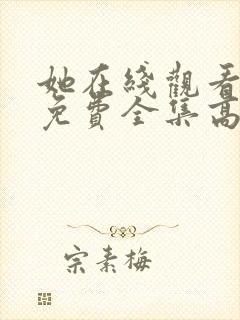 她在綫觀看
免費全集高
宗素梅